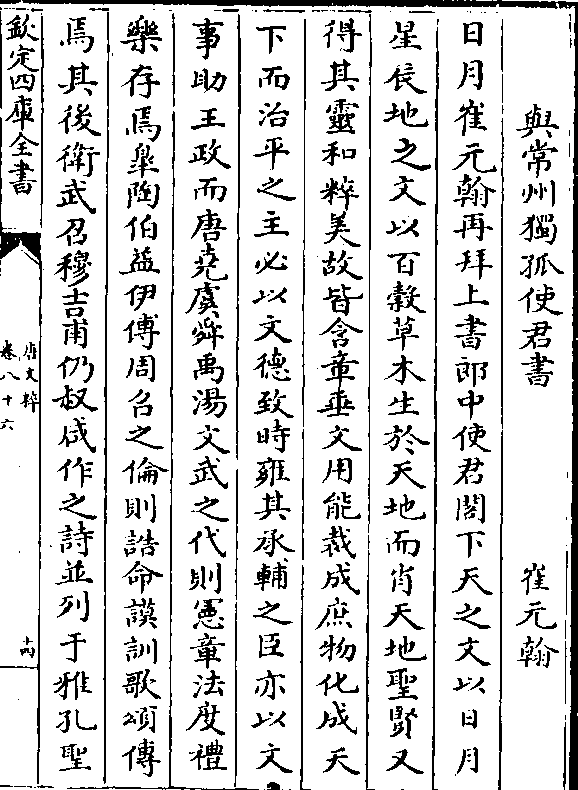 與常州獨孤使君書 崔元翰
日月崔元翰再拜上書郎中使君閣下天之文以日月
星辰地之文以百穀草木生於天地而肖天地聖賢又
得其靈和粹美故皆含章垂文用能裁成庶物化成天
下而治平之主必以文德致時雍其承輔之臣亦以文
事助王政而唐堯虞舜禹湯文武之代則憲章法度禮
樂存焉臯陶伯益伊傅周召之倫則誥命謨訓歌頌傳
焉其後衛武召穆吉甫仍叔咸作之詩並列于雅孔聖
欽定四庫全書
唐文粹
卷八十六
十四